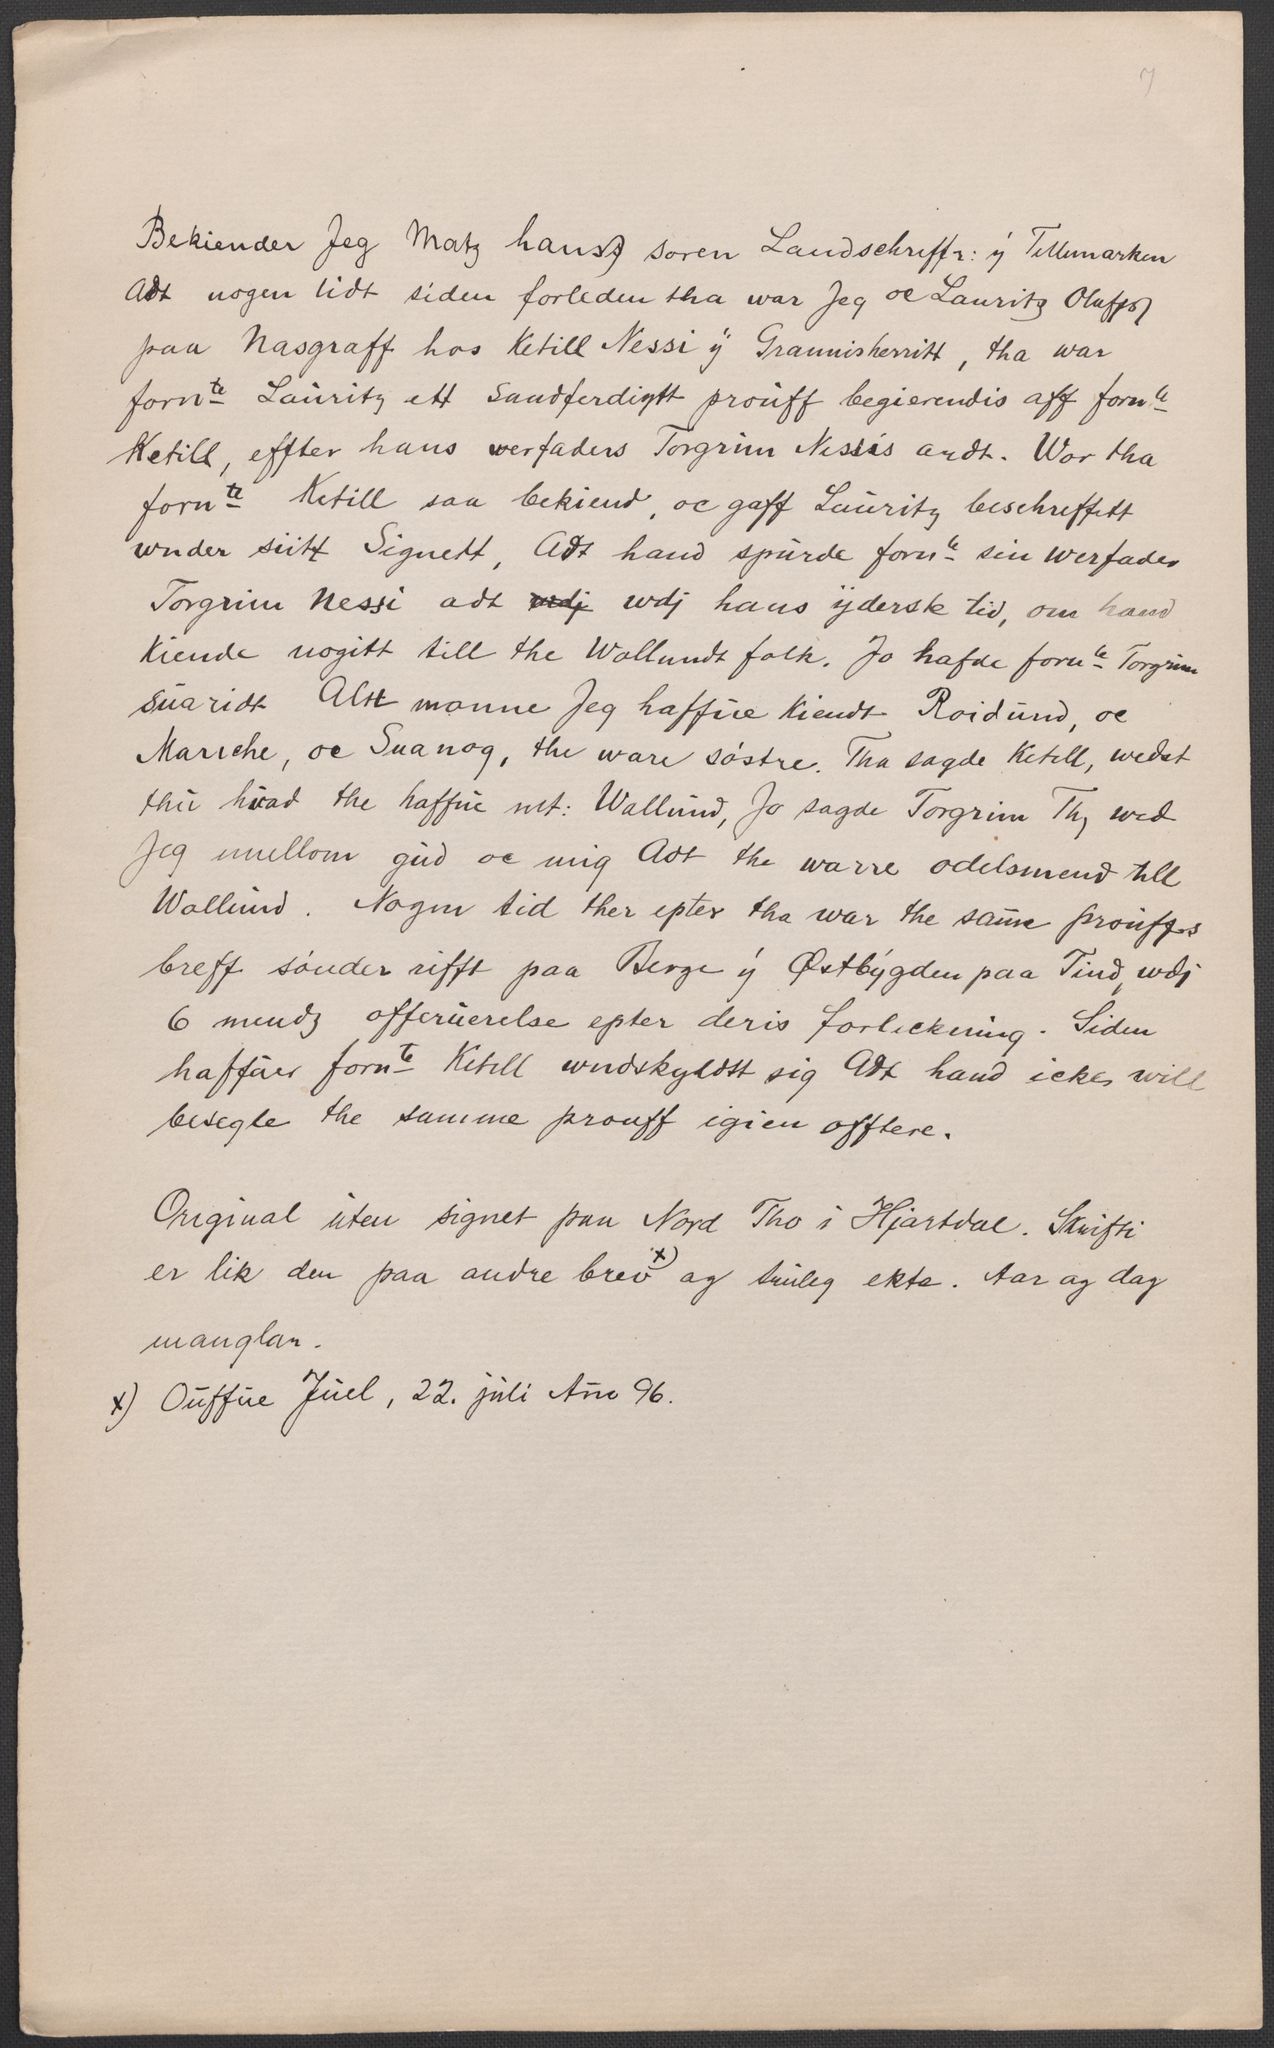 7
Bekiender Jeg Matz hansz soren Landschreffr: ÿ Tellemarken
Adt nogen tidt siden forleden tha war Jeg oc Lauritz Oluffsz
paa Nasgraff hos Ketill Nessi ÿ Grannisherritt, tha war
fornte Lauritz ett Sandferdigtt prouff begierendis aff fornte
Ketill, effter hans werfaders Torgrim Nessis ardt. Wor tha
fornte Ketill saa bekiend, oc gaff Lauritz beschreffett
wnder siitt Signett, Adt hand spurde fornte sin werfader
Torgrim Nessi adt wdj wdj hans ÿderste tid, om hand
kiende nogitt till the Wallundt folk. Jo hafde fornte Torgrim
suaridt Altt monne Jeg haffue kiendt Roidund, oc
Mariche, oc Suanog, the ware söstre. Tha sagde Ketill, wedst
thu huad the haffue mt: Wallund, Jo sagde Torgrim Thj wed
Jeg mellom gud oc mig Adt the warre odelsmend till
Wallund. Nogen tid ther epter tha war the same prouffs
breff sönder rifft paa Berge ÿ Østbÿgden paa Tind, wdj
6 mendz offeruerelse epter deris forlickning. Siden
haffuer fornte Ketill wndskyldtt sig Adt hand icke will
besegle the samme prouff igien offtere.
Original uten signet paa Nord Tho i Hjartdal. Skrifti
er lik den paa andre brev x) og truleg ekte. Aar og dag
manglar.
x) Ouffue Juel, 22. juli Ano 96.